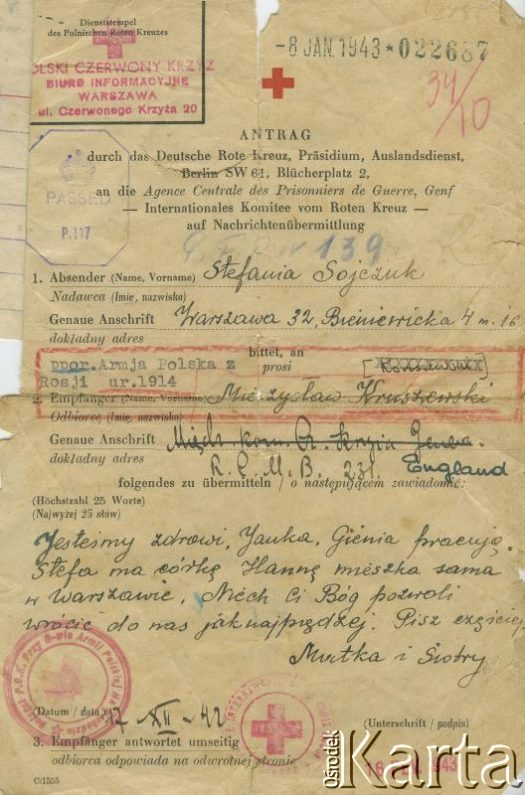 Dienststempel
des Polnischen Roten Kreuzes
POLSKI CZERWONY KRZYŻ
BIURO INFORMACYJNE
WARSZAWA
ul. Czerwonego Krzyża 20
-8 JAN. 1943 * 022687
34/10
ANTRAG
durch das Deutsche Rote Kreuz, Präsidium, Auslandsdienst,
Berlin SW 61, Blücherplatz 2,
PASSED
P.117
an die Agence Centrale des Prisonniers de Guerre, Genf
— Internationales Komitee vom Roten Kreuz —
auf Nachrichtenübermittlung
139
1. Absender (Name, Vorname) Stefania Sojczuk
Nadawca (Imię, nazwisko)
Genaue Anschrift Warszawa 32, Bieniewicka 4 m. 16
dokładny adres
bittet, an
prosi
ppor. Armja Polska z
Rosji ur. 1914
2. Empfänger (Name, Vorname) Mieczysław Kruszewski
Odbiorca (Imię, nazwisko)
Genaue Anschrift Międz. kom. Cz. Krzyża Genewa.
dokładny adres R.C.M.B. 231. England
folgendes zu übermitteln / o następującem zawiadomić:
(Höchstzahl 25 Worte)
(Najwyżej 25 słów)
Jesteśmy zdrowi, Janka, Gienia pracują.
Stefa ma córkę Hannę mieszka sama
w Warszawie. Niech Ci Bóg pozwoli
wrócić do nas jaknajprędzej. Pisz częściej
Matka i Siostry
(Datum / data) 17-XII-42
(Unterschrift / podpis)
3. Empfänger antwortet umseitig
odbiorca odpowiada na odwrotnej stronie
1943
C/1555
Ośrodek
Karta
www.karta.org.pl